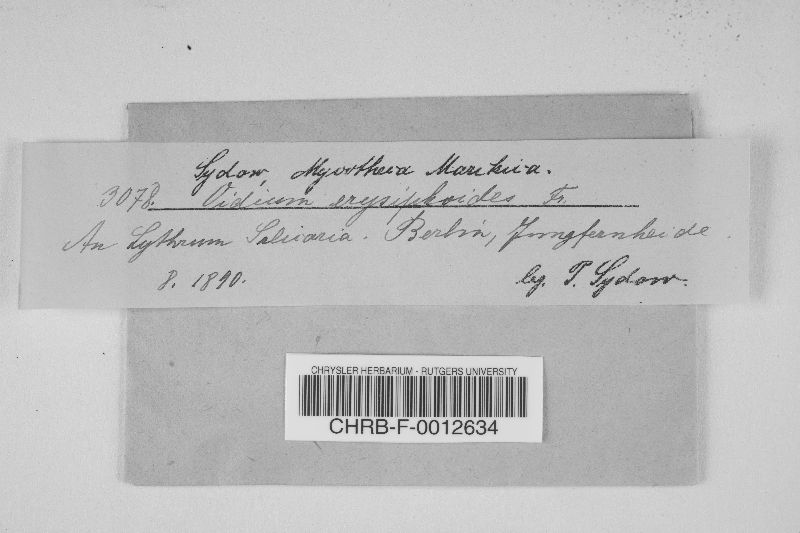 Sydow, Mycotheca Marchica.
3078. Oidium erysiphoides Fr.
An Lythrum Salicaria. Berlin, Jungfernheide.
8. 1890. leg. P. Sydow.
CHRYSLER HERBARIUM - RUTGERS UNIVERSITY
CHRB-F-0012634